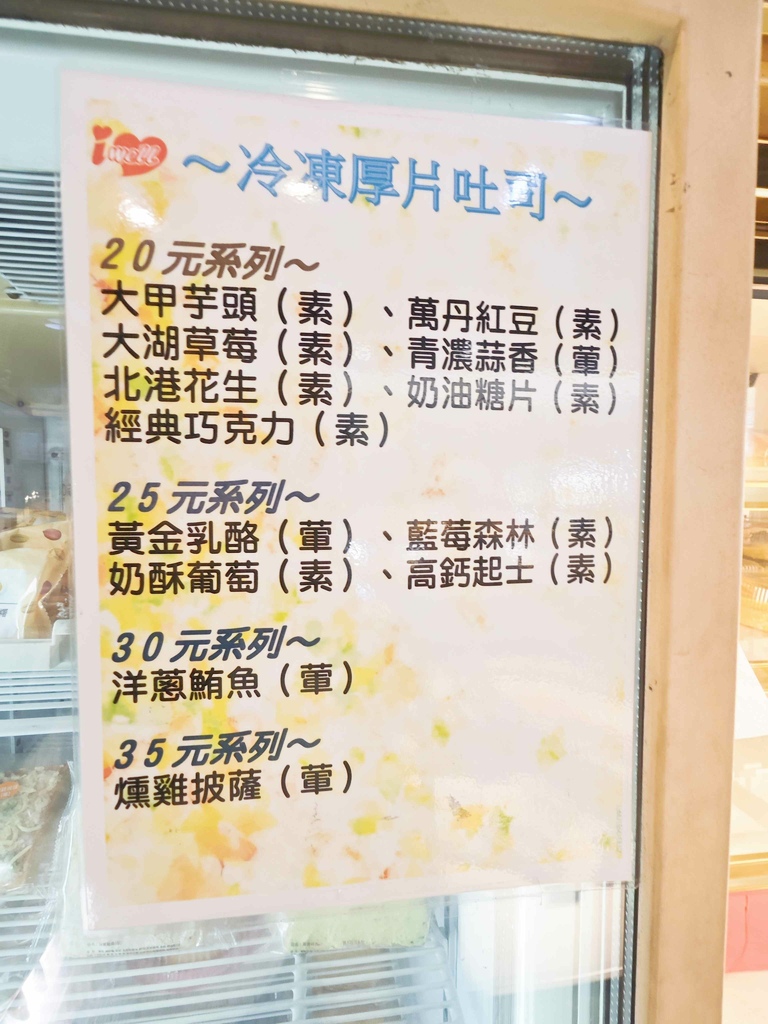 i well
～冷凍厚片吐司～
20元系列～
大甲芋頭（素）、萬丹紅豆（素）
大湖草莓（素）、青濃蒜香（葷）
北港花生（素）、奶油糖片（素）
經典巧克力（素）
25元系列～
黃金乳酪（葷）、藍莓森林（素）
奶酥葡萄（素）、高鈣起士（素）
30元系列～
洋蔥鮪魚（葷）
35元系列～
燻雞披薩（葷）